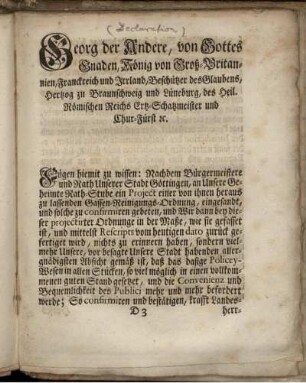 (Declaration)
Georg der Andere, von Gottes
Gnaden, König von Groß-Britan-
nien, Franckreich und Irrland, Beschützer des Glaubens,
Hertzog zu Braunschweig und Lüneburg, des Heil.
Römischen Reichs Ertz-Schatzmeister und
Chur-Fürst ꝛc.
Fügen hiemit zu wissen: Nachdem Bürgermeistere
und Rath Unserer Stadt Göttingen, an Unsere Ge-
heimte Rath-Stube ein Project einer von ihnen heraus
zu lassenden Gassen-Reinigungs-Ordnung, eingesandt,
und solche zu confirmiren gebeten, und Wir dann bey die-
ser projectirter Ordnunge in der Maße, wie sie gefasset
ist, und mittelst Rescripts vom heutigen dato zurück ge-
fertiget wird, nichts zu erinnern haben, sondern viel-
mehr Unsere, vor besagte Unsere Stadt habenden aller-
gnädigsten Absicht gemäß ist, daß das dasige Policey-
Wesen in allen Stücken, so viel möglich in einen vollkom-
menen guten Stand gesetzet, und die Convenienz und
Bequemlichkeit des Publici mehr und mehr befordert
werde; So confirmiren und bestätigen, krafft Landes-
D 3 herr-